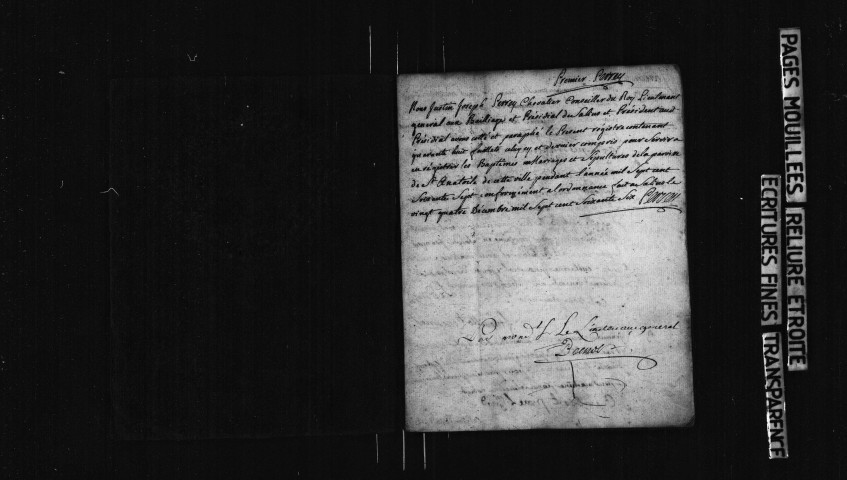 Premier Perrey
Nous Justin Joseph Perrey Chevalier Conseiller du Roy Lieutenant
general aux Bailliage et Présidial de Salins et Président audt
Présidial avons cotté et paraphé le Present registre contenant
quarante huit feuillets celuy cy et dernier compris pour servir a
enregistrer les Baptêmes mariages et Sepultures de la paroisse
de St Anatoile de cette ville pendant l'année mil Sept cent
Soixante Sept conformément a l'ordonnance fait a Salins le
vingt quatre Décembre mil Sept cent Soixante Six Perrey
Par mondt S. Le Lieutenant general
PAGES MOUILLEES RELIURE ETROITE
ECRITURES FINES TRANSPARENCE